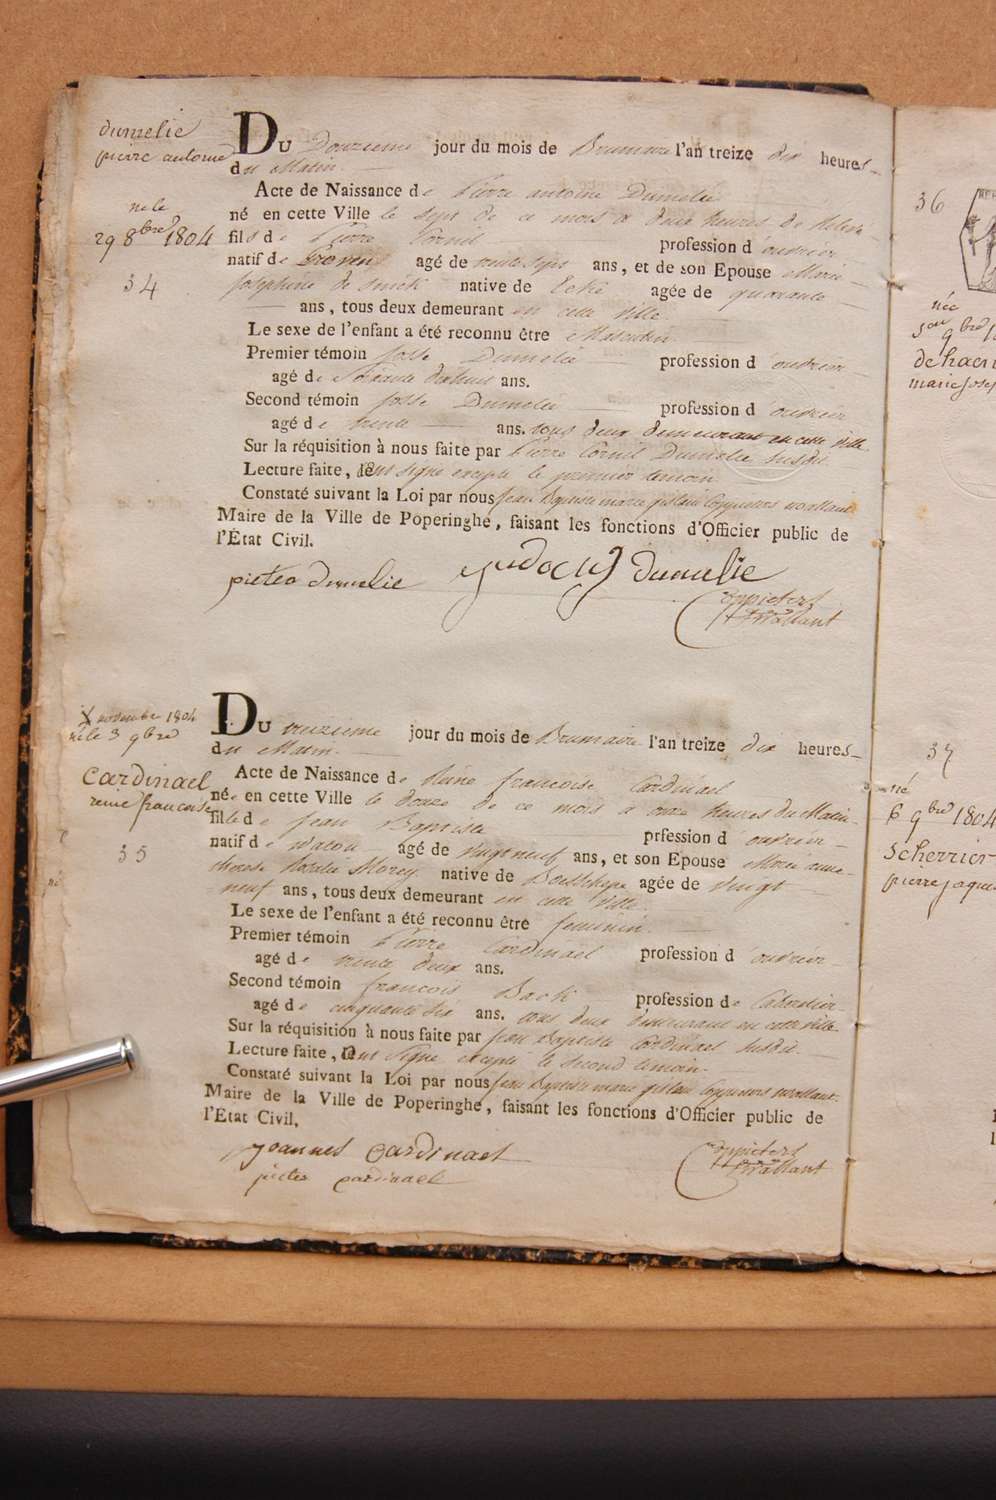 dumelie
pierre antoine
né le
29 8bre 1804
34
Du Douzieme jour du mois de Brumaire l'an treize dix heures
du Matin
Acte de Naissance de Pierre antoine Dumelie
né en cette Ville le sept de ce mois a deux heures de
fils de Pierre Cornil profession d ouvrier
natif de Proven agé de trente sept ans, et de son Epouse Marie
Josephine de native de Ecke agée de quarante
ans, tous deux demeurant en cette ville
Le sexe de l'enfant a été reconnu être Masculin
Premier témoin Josse Dumelie profession d ouvrier
agé de Soixante ans.
Second témoin Josse Dumelie profession d ouvrier
agé de trente ans. tous deux demeurant en cette ville
Sur la réquisition à nous faite par Pierre Cornil Dumelie susdit
Lecture faite, ont signé excepté le premier temoin
Constaté suivant la Loi par nous Jean Baptiste marie gislain Coppieters wallant
Maire de la Ville de Poperinghe, faisant les fonctions d'Officier public de
l'État Civil.
pieter dumelie judocus dumelie
Coppieters
wallant
X novembre 1804
né le 3 9bre
Cardinael
reine francoise
35
Du treizieme jour du mois de Brumaire l'an treize dix heures
du Matin
Acte de Naissance de Reine francoise Cardinael
née en cette Ville le douze de ce mois a onze heures du Matin
fille de Jean Baptiste prfession d ouvrier
natif de watou agé de vingt neuf ans, et son Epouse Marie anne
therese Rosalie Morey native de Boeschepe agée de vingt
neuf ans, tous deux demeurant en cette ville
Le sexe de l'enfant a été reconnu être feminin
Premier témoin Pierre Cardinael profession d ouvrier
agé de trente deux ans.
Second témoin francois Back profession de Cabaretier
agé de cinquante six ans. tous deux demeurant en cette ville
Sur la réquisition à nous faite par Jean Baptiste Cardinael susdit
Lecture faite, ont signé excepté le second temoin
Constaté suivant la Loi par nous Jean Baptiste marie gislain Coppieters wallant
Maire de la Ville de Poperinghe, faisant les fonctions d'Officier public de
l'État Civil.
joannes cardinael
pieter cardinael
Coppieters
wallant
36
née
9bre
marie
37
né
6 9bre 1804
scherrier
pierre jaque